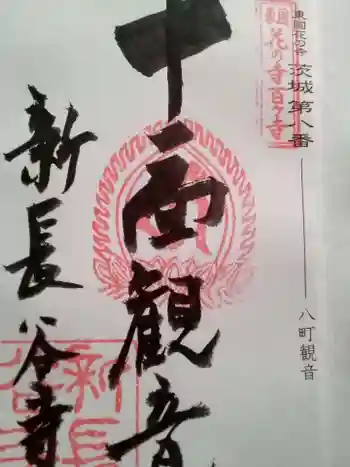 東国花の寺 茨城第八番
八町観音
東国
花の寺百ヶ寺
十一面観音
新長谷寺
新長